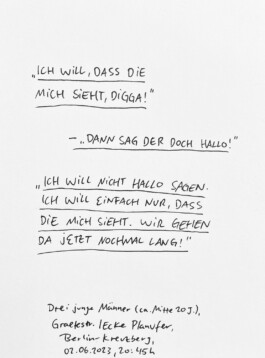 „ICH WILL, DASS DIE
MICH SIEHT, DIGGA!"
– „DANN SAG DER DOCH HALLO!"
„ICH WILL NICHT HALLO SAGEN.
ICH WILL EINFACH NUR, DASS
DIE MICH SIEHT. WIR GEHEN
DA JETZT NOCHMAL LANG!"
Drei junge Männer (ca. Mitte 20 J.),
Graefestr. / Ecke Planufer,
Berlin-Kreuzberg,
02.06.2023, 20:45h